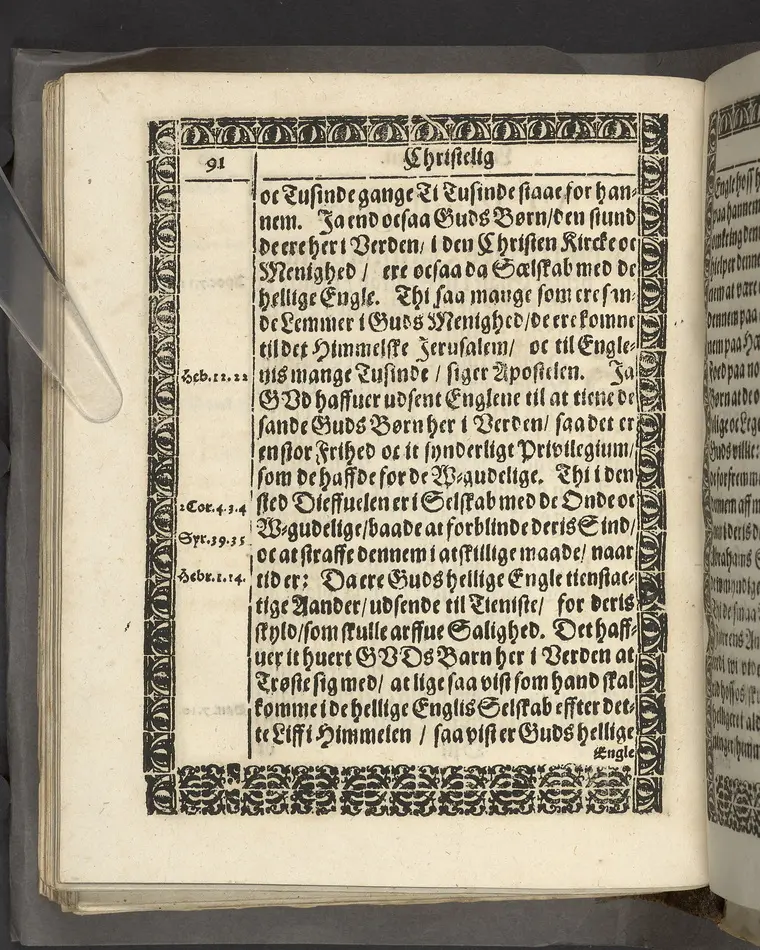 91
Christelig
oc Tusinde gange Ti Tusinde staae for han-
nem. Ja end ocsaa Guds Børn/ den stund
de ere her i Verden/ i den Christen Kircke oc
Menighed / ere ocsaa da Sælskab med de
hellige Engle. Thi saa mange som ere san-
de Lemmer i Guds Menighed/ de ere komne
til det Himmelske Jerusalem/ oc til Engle-
Heb.12.22
nis mange Tusinde / siger Apostelen. Ja
GVd haffuer udsent Englene til at tiene de
sande Guds Børn her i Verden/ saa det er
en stor Frihed oc it synderligt Privilegium/
som de haffde for de W-gudelige. Thi i den
2 Cor.4.3.4
sted Dieffuelen er i Selskab med de Onde oc
W-gudelige/ baade at forblinde deris Sind/
Syr.39.35
oc at straffe dennem i atskillige maade/ naar
Hebr.1.14.
tid er: Da ere Guds hellige Engle tienstac-
tige Aander/ udsende til Tieniste/ for deris
skyld/ som skulle arffue Salighed. Det haff-
uer it huert GVDs Barn her i Verden at
Trøste sig med/ at lige saa vist som hand skal
komme i de hellige Englis Selskab effter det-
te Liff i Himmelen / saa vist er Guds hellige
Engle